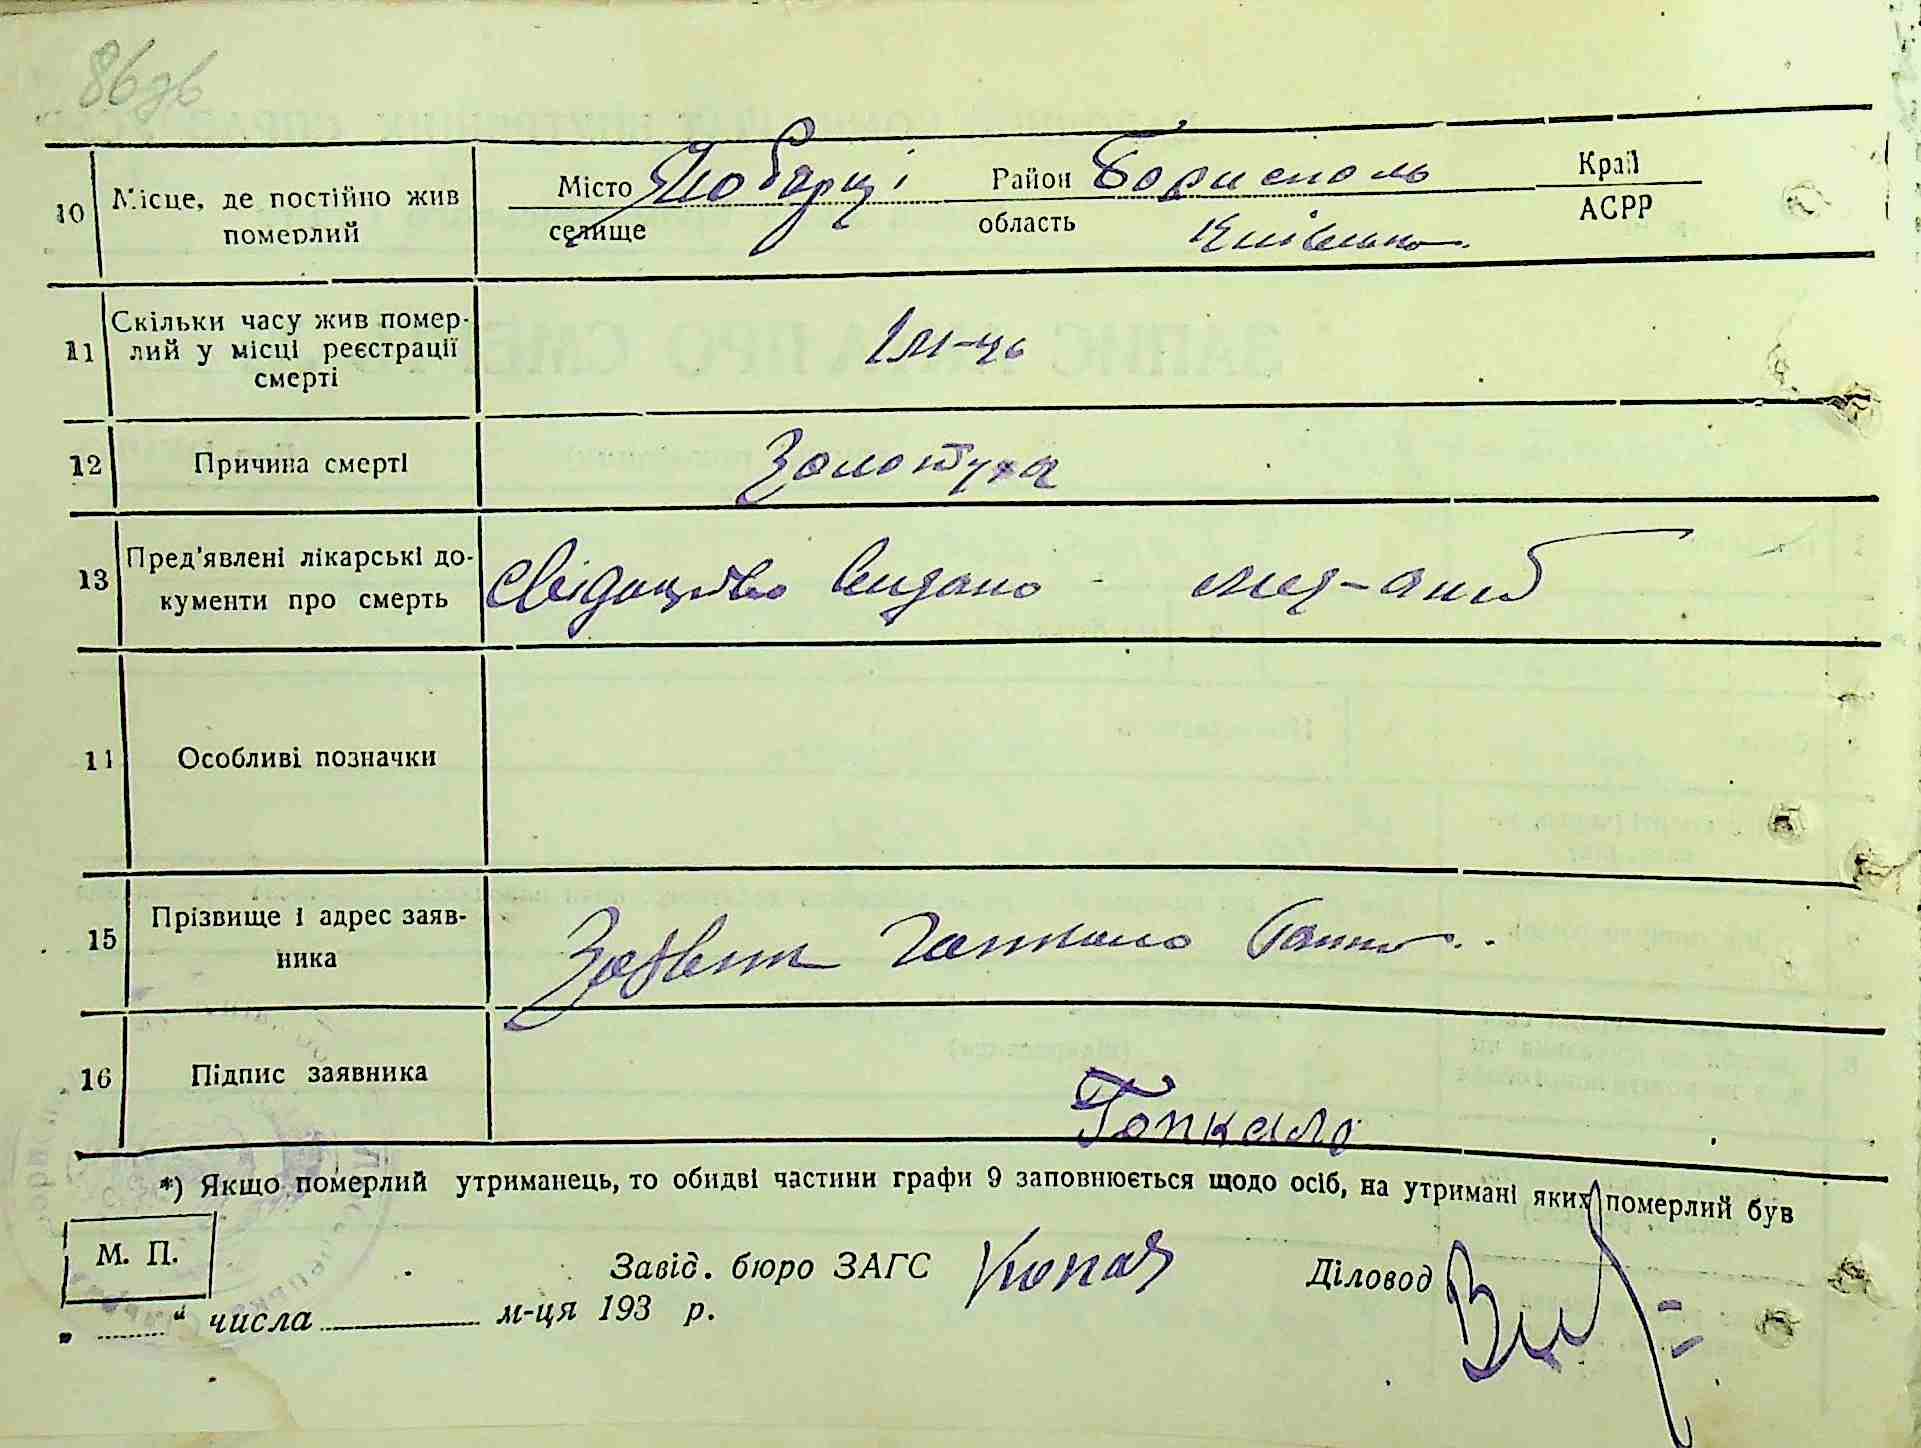 86зв
10
Місце, де постійно жив
померлий
Місто Любарці Район Бориспіль Край
селище область Київська АСРР
11
Скільки часу жив помер-
лий у місці реєстрації
смерті
1 м-ць
12
Причина смерті
Золотуха
13
Пред'явлені лікарські до-
кументи про смерть
свідоцтво видано -
11
Особливі позначки
15
Прізвище і адрес заяв-
ника
16
Підпис заявника
Гопкало
*) Якщо померлий утриманець, то обидві частини графи 9 заповнюється щодо осіб, на утримані яких померлий був
М. П.
Завід. бюро ЗАГС Діловод
„ ...... “ числа м-ця 193 р.